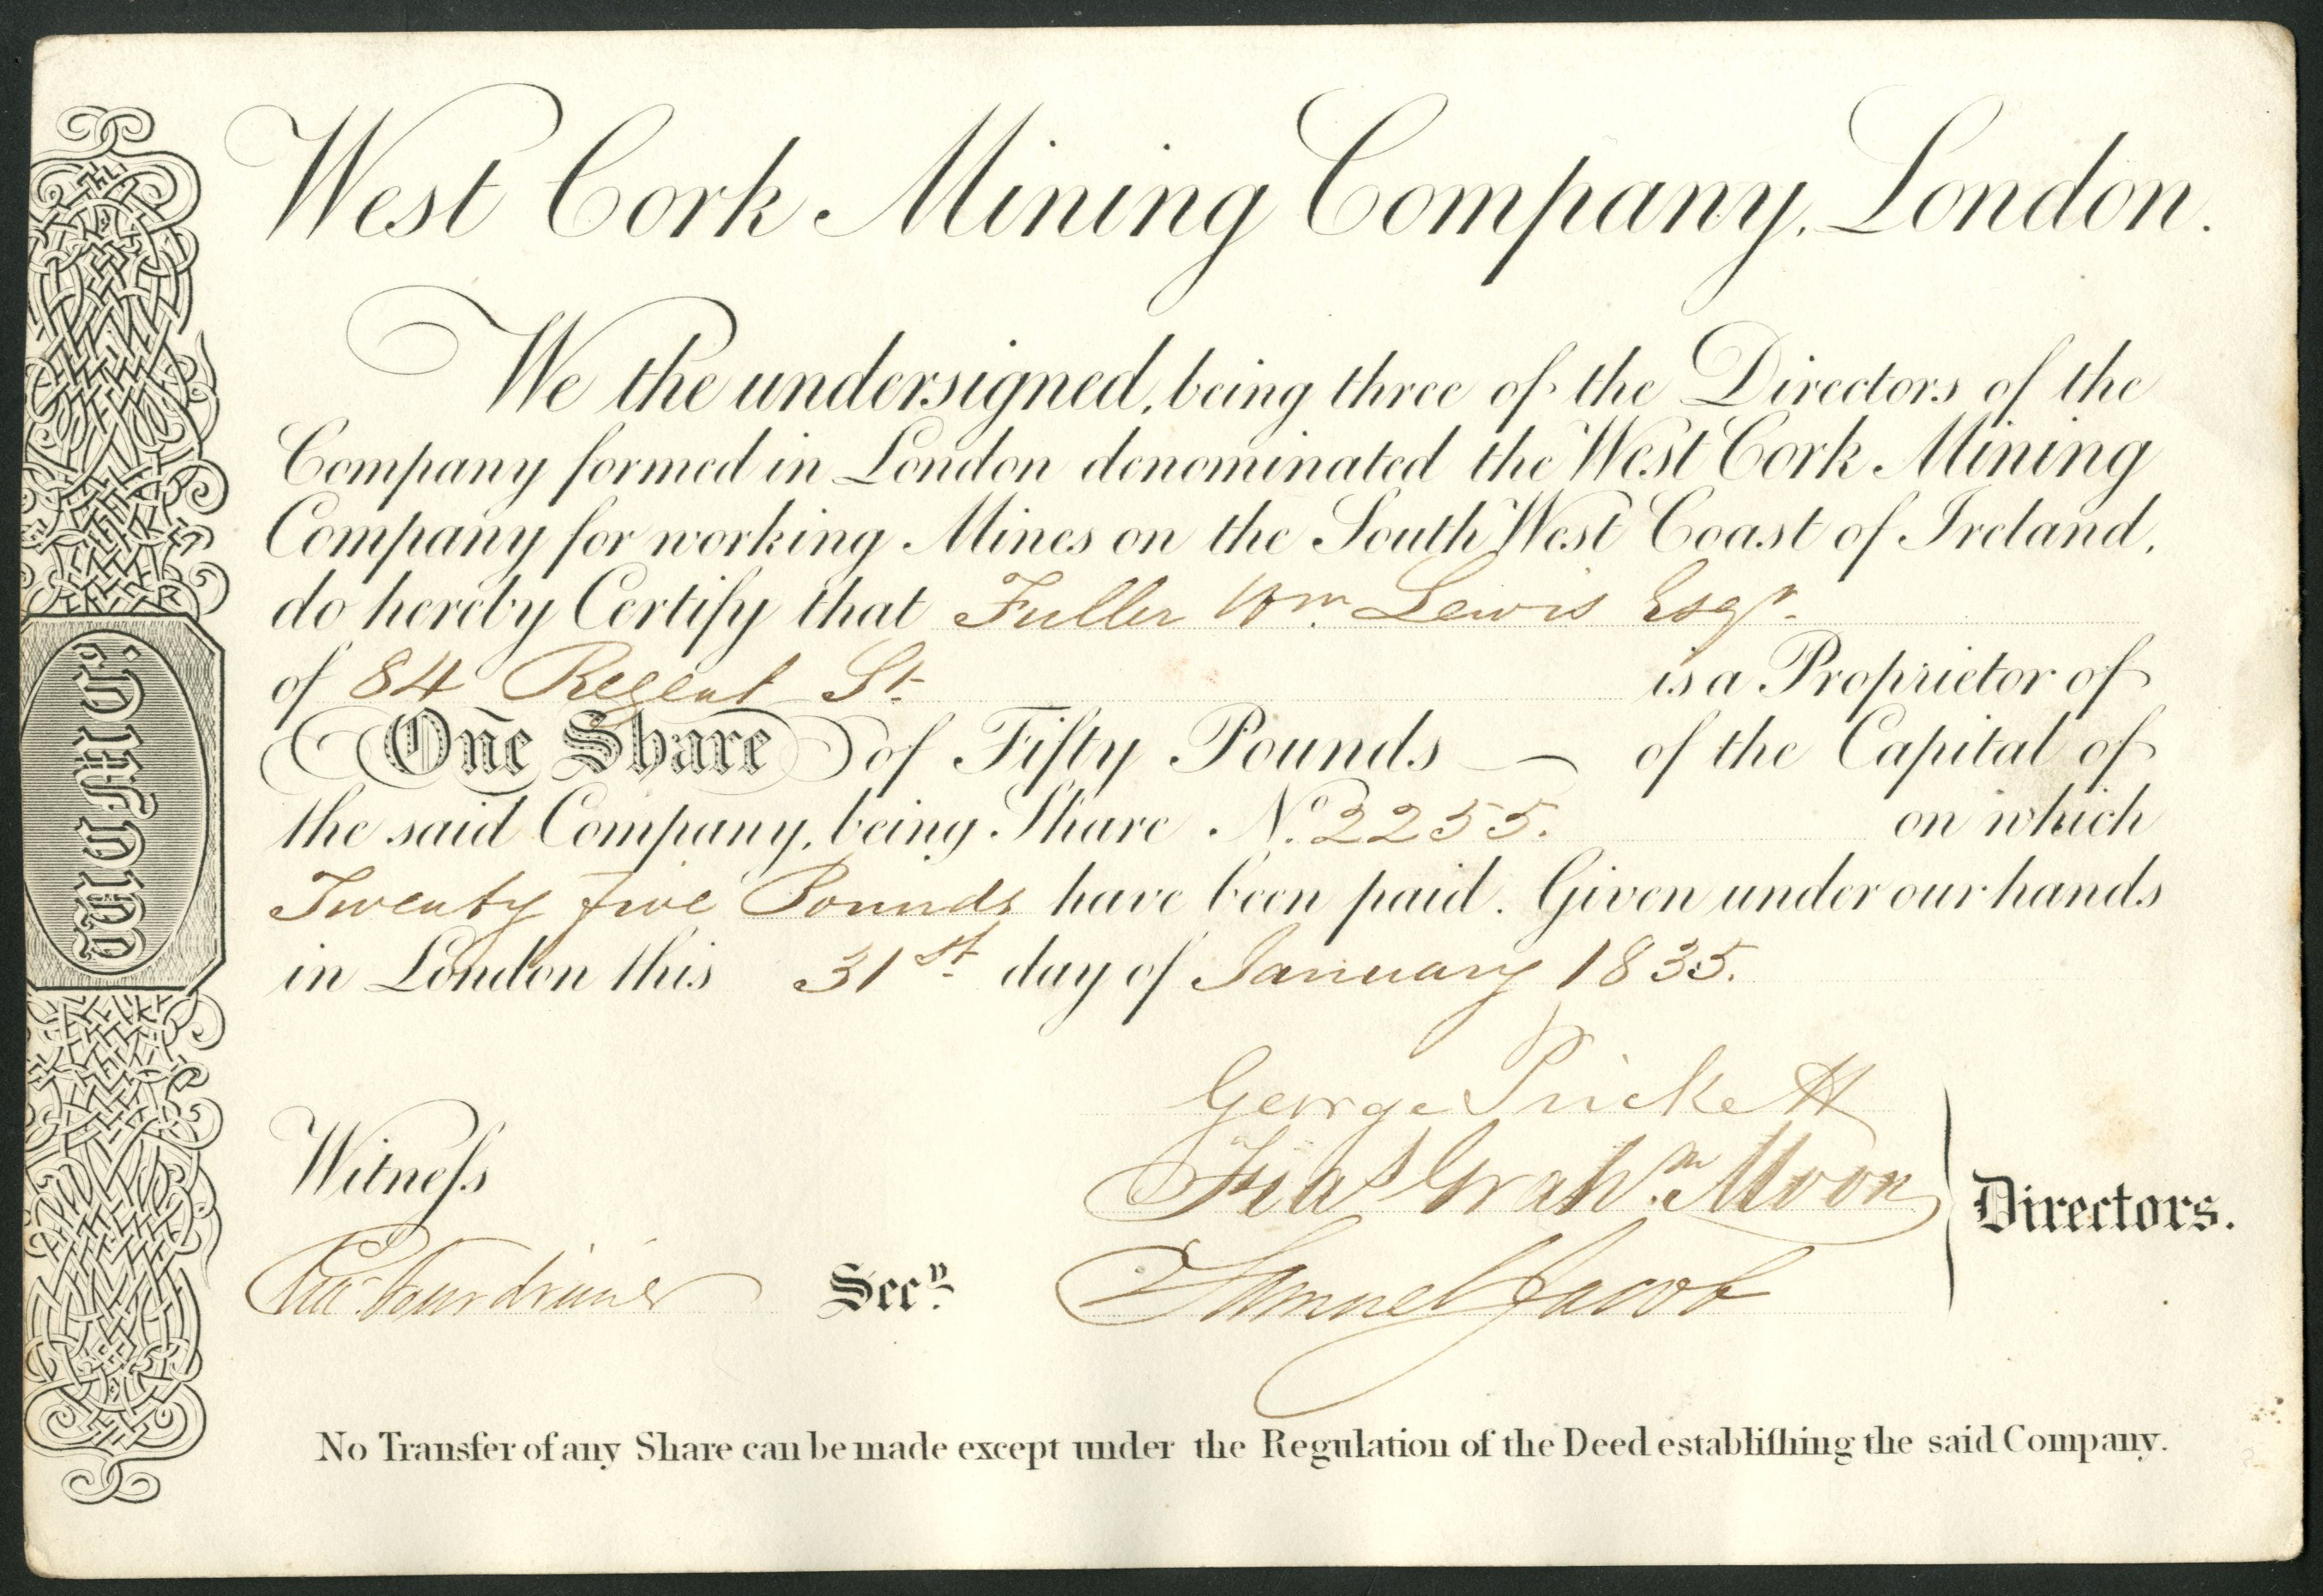 West Cork Mining Company, London.
We the undersigned, being three of the Directors of the
Company formed in London denominated the West Cork Mining
Company for working Mines on the South West Coast of Ireland,
do hereby Certify that Fuller Wm. Lewis Esqr.
of 84 Regent St. is a Proprietor of
One Share of Fifty Pounds — of the Capital of
the said Company, being Share No. 2255. on which
Twenty five Pounds have been paid. Given under our hands
in London this 31st. day of January 1835.
George Prickett
Witneſs
Fras Grahm. Moon
Directors.
Fourdrinier Secy.
Samuel Jacob
No Transfer of any Share can be made except under the Regulation of the Deed establiſhing the said Company.